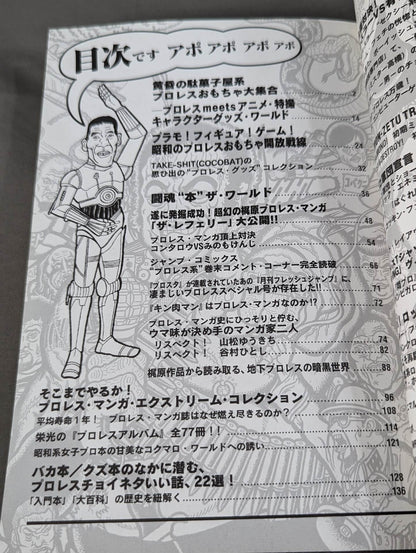 目次です アポ アポ アポ アポ
黄昏の駄菓子屋系
プロレスおもちゃ大集合 2
プロレスmeetsアニメ・特撮
キャラクターグッズ・ワールド 14
プラモ！フィギュア！ゲーム！
昭和のプロレスおもちゃ開放戦線 24
TAKE-SHIT(COCOBAT)の
思ひ出の“プロレス・グッズ”コレクション
闘魂“本”ザ・ワールド
遂に発掘成功！超幻の梶原プロレス・マンガ
「ザ・レフェリー」大公開!! 48
プロレス・マンガ頂上対決
コンタロウVSみのもけんじ 54
ジャンプ・コミックス
“プロレス系”巻末コメント・コーナー完全読破 66
『プロスタ』が連載されていたあの『月刊フレッシュジャンプ』に、
凄ましいプロレススペシャル号が存在した!! 71
『キン肉マン』はプロレス・マンガなのか!? 72
プロレス・マンガ史にひっそりと佇む、
ウマ味が決め手のマンガ家二人
リスペクト！ 山松ゆうきち 74
リスペクト！ 谷村ひとし 82
梶原作品から読み取る、地下プロレスの暗黒世界 88
そこまでやるか！
プロレス・マンガ・エクストリーム・コレクション 96
平均寿命1年！ プロレス・マンガ誌はなぜ燃え尽きるのか？ 108
栄光の『プロレスアルバム』全77冊!! 114
昭和系女子プロ本の甘美なコクマロ・ワールドへの誘い 121
バカ本／クズ本のなかに潜む、
プロレスチョイネタいい話、22選！ 128
「入門本」「大百科」の歴史を紐解く 136